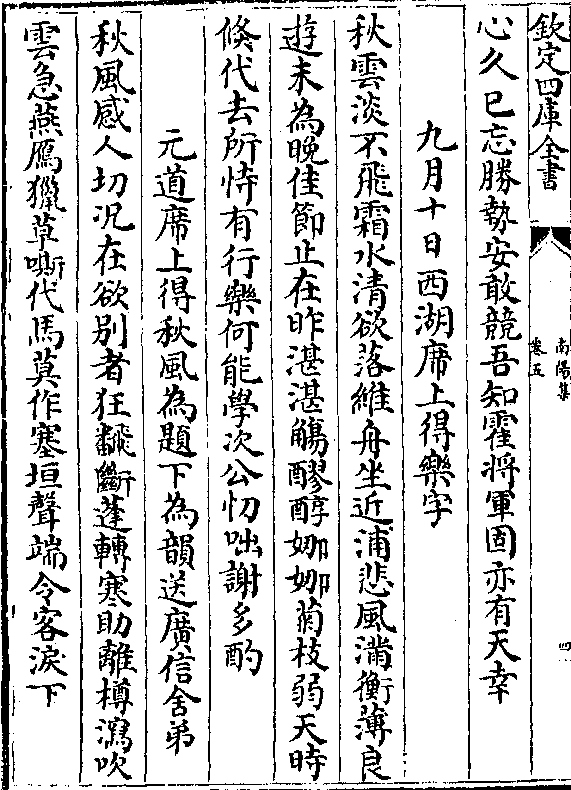 欽定四庫全書
南陽集
卷五
四
心久已忘勝勢安敢競吾知霍將軍固亦有天幸
九月十日西湖席上得樂字
秋雲淡不飛霜水清欲落維舟坐近浦悲風滿衡薄良
遊未為晚佳節止在昨湛湛觴醪醇㛂㛂菊枝弱天時
倐代去所恃有行樂何能學次公忉咄謝多酌
元道席上得秋風為題下為韻送廣信舍弟
秋風感人切况在欲别者狂飜斷蓬轉寒助離樽瀉吹
雲急燕鴈獵草嘶代馬莫作塞垣聲端令客淚下